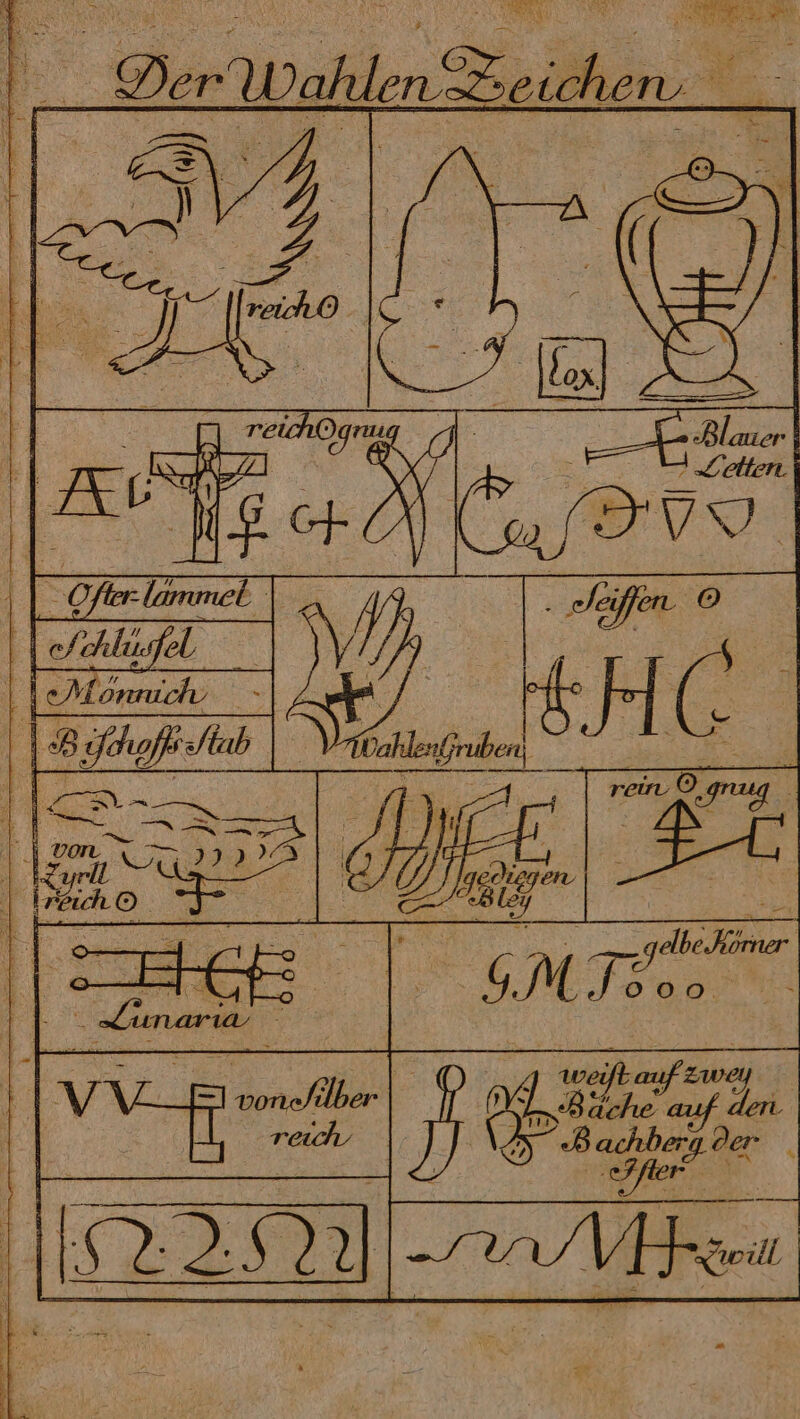 Der Wahlen Zeichen
reich ☉
fox
reich ☉ gnug
Blauer
Letten
Ofterlämmel
Schlüssel
Mönnich
Bischoffs Stab
Wahlen Gruben
Seiffen ☉
HC
von
Zyrll
reich ☉
gediegen
Bley
rein ☉ gnug
Lunaria
gelbe Körner
GMJooo
VV
von Silber
reich
weist auf zwey
Bäche auf den
Bachberg der
Jfter
zwill